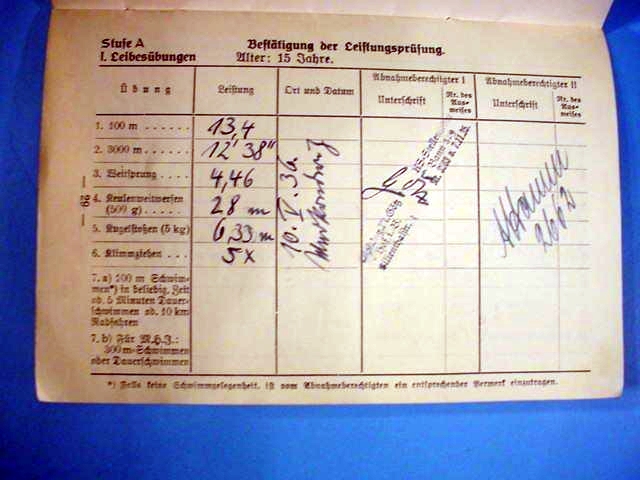 Stufe A
Bestätigung der Leistungsprüfung.
I. Leibesübungen
Alter: 15 Jahre.
Übung
Leistung
Ort und Datum
Abnahmeberechtigter I
Unterschrift
Nr. des Aus- weises
Abnahmeberechtigter II
Unterschrift
Nr. des Aus- weises
1. 100 m ......
13,4
2. 3000 m .....
12' 38"
3. Weitsprung ...
4,46
4. Keulenweitwerfen
(500 g) .....
28 m
5. Kugelstoßen (5 kg)
6,33 m
6. Klimmziehen ..
5x
10. V. 39
7. a) 100 m Schwim-
men*) in beliebig. Zeit
od. 5 Minuten Dauer-
schwimmen od. 10 km
Radfahren
7. b) Für M.H.J.:
300 m-Schwimmen
oder Dauerschwimmen
*) Falls keine Schwimmgelegenheit, ist vom Abnahmeberechtigten ein entsprechender Vermerk einzutragen.
— 29 —